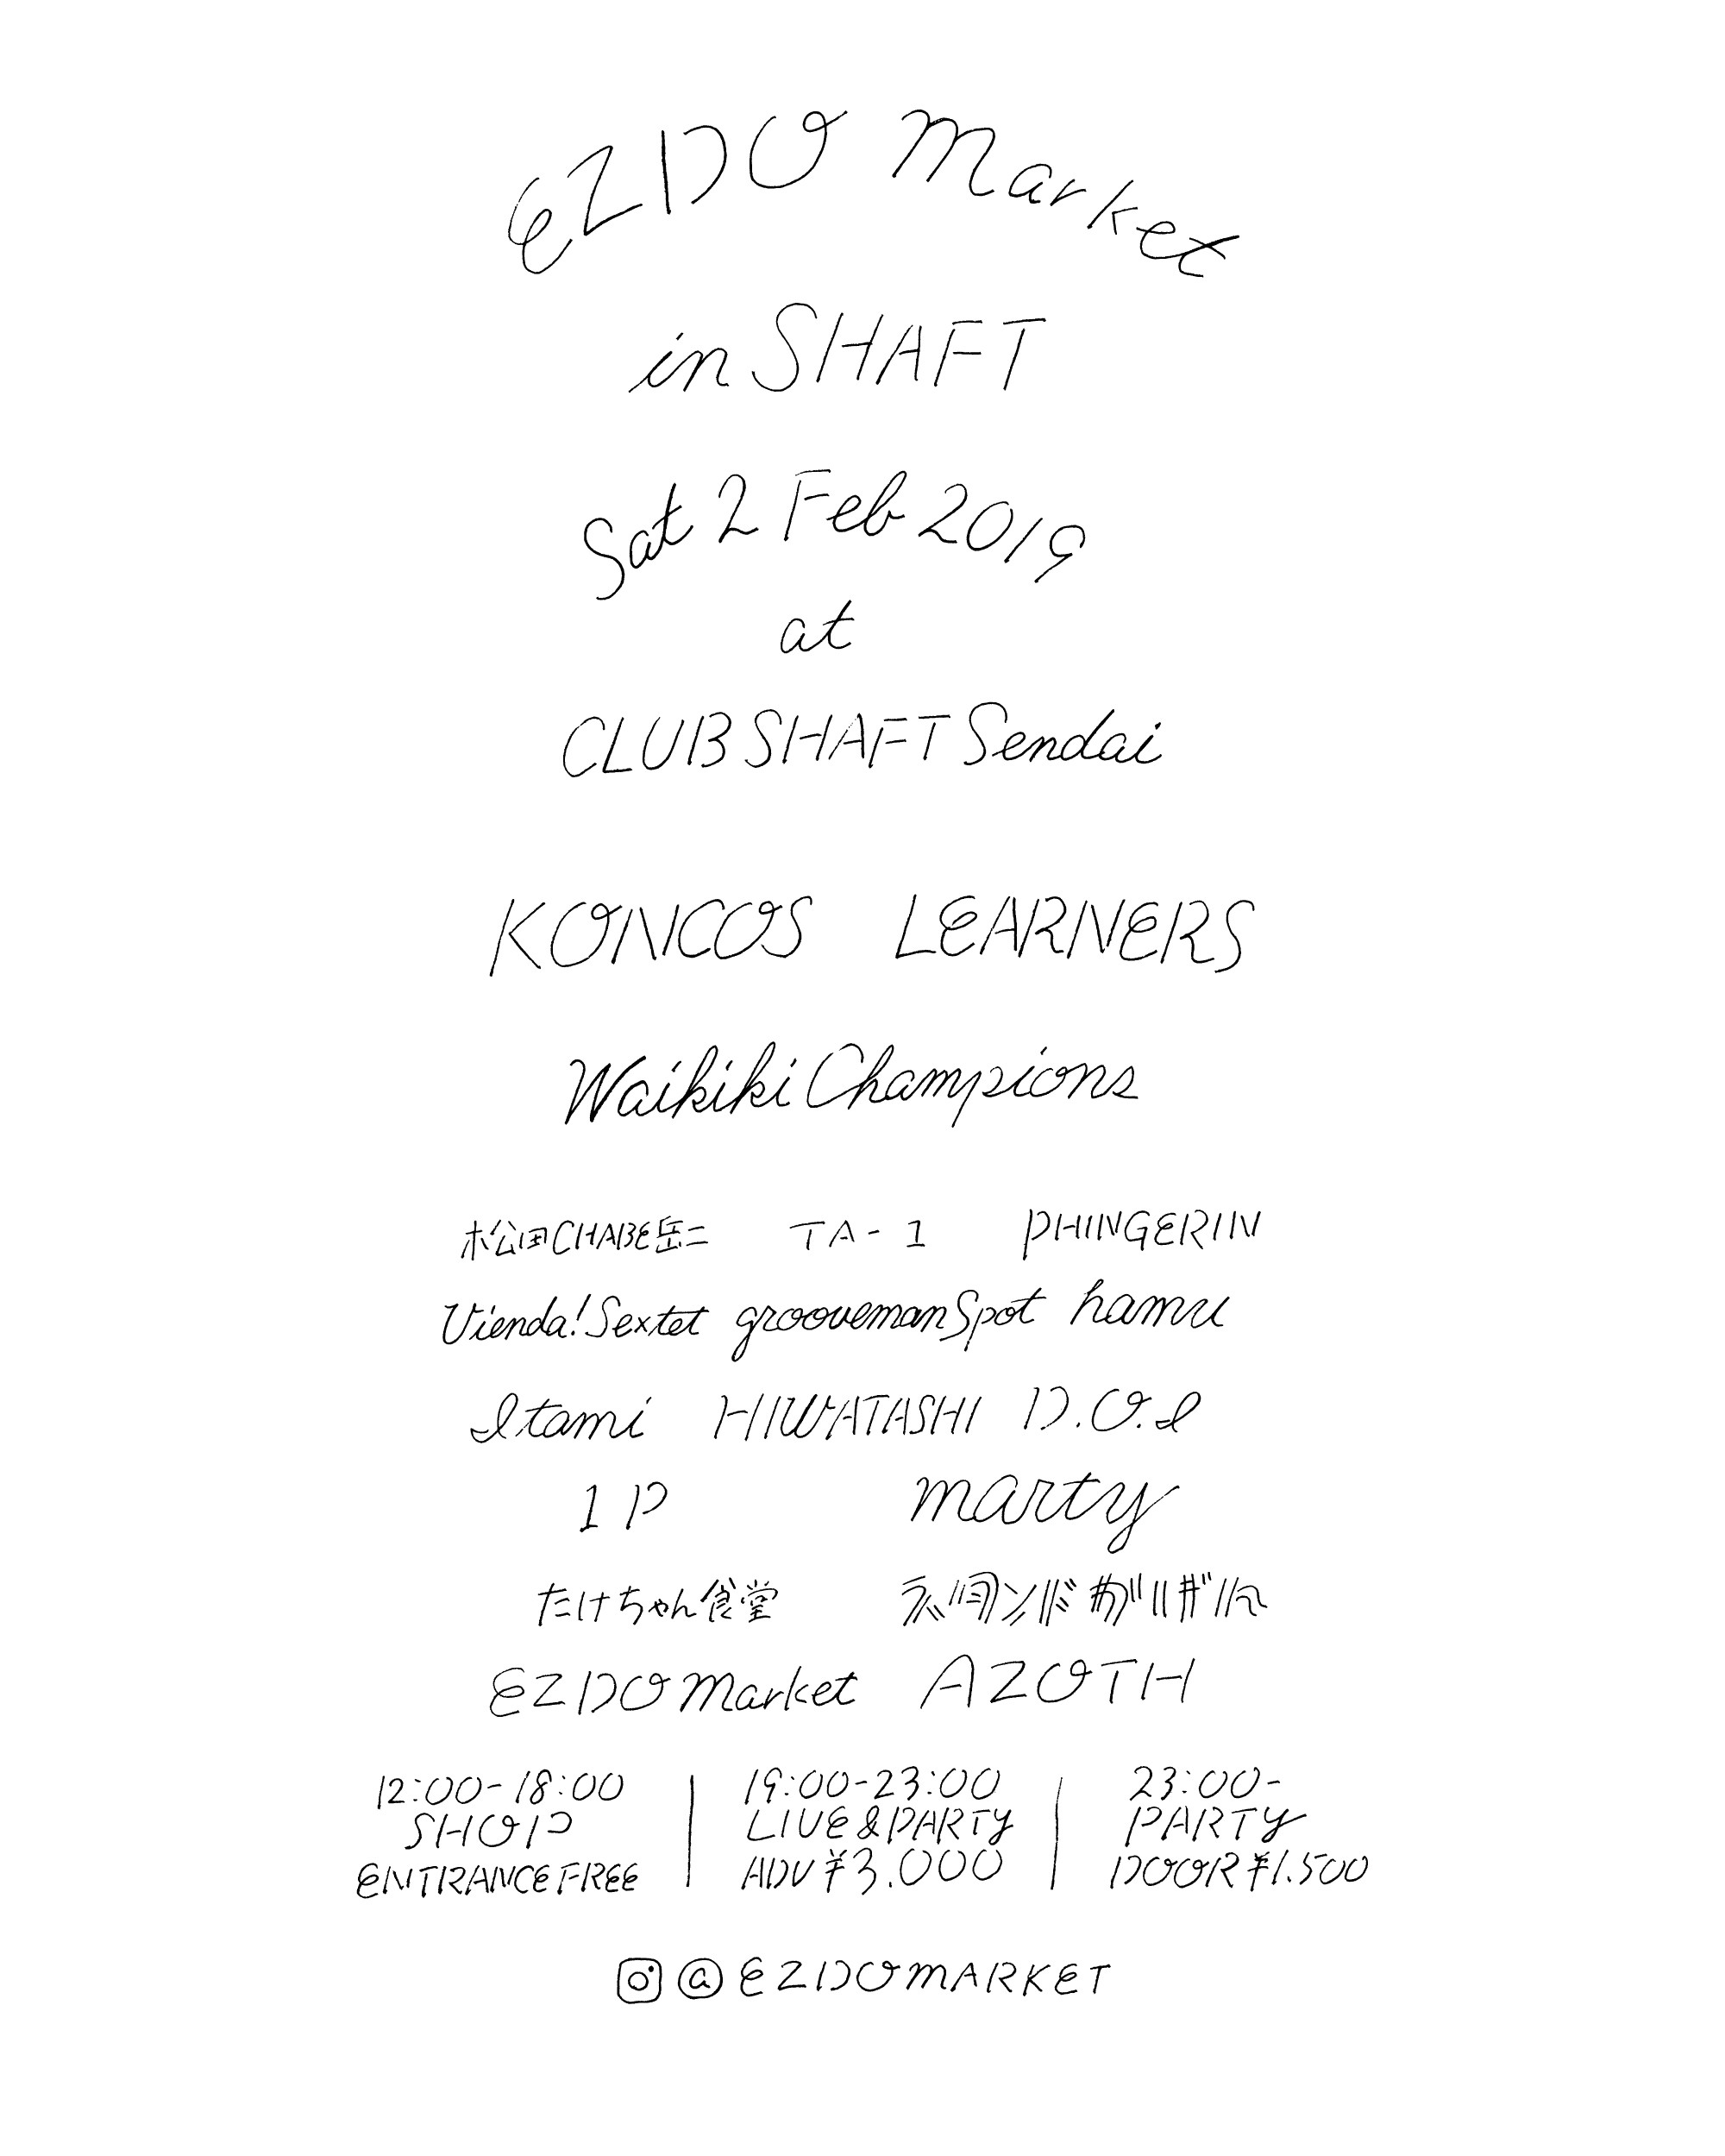 EZDO Market
in SHAFT
Sat 2 Feb 2019
at
CLUB SHAFT Sendai
KONCOS LEARNERS
Waikiki Champions
松田CHABE岳二 TA-1 PHINGERIN
Vienda! Sextet groovemanSpot hamu
Itami HIWATASHI D.O.I
1P marty
たけちゃん食堂
EZDO Market AZOTH
12:00-18:00 19:00-23:00 23:00-
SHOP LIVE & PARTY PARTY
ENTRANCE FREE ADV ¥3.000 DOOR ¥1.500
@EZDOMARKET